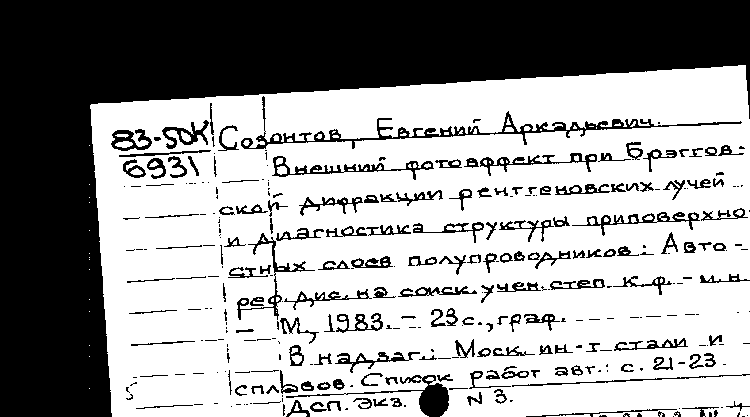 83-5ОК Созонтов, Евгений Аркадьевич.
6931 Внешний фотоэффект при Брэггов-
ской дифракции рентгеновских лучей
и диагностика структуры приповерхно-
стных слоев полупроводников: Авто-
реф. дис. на соиск. учен. степ. к. ф. - м. н.
- М., 1983. - 23 с., граф.
В надзаг.: Моск. ин-т стали и
сплавов. Список работ авт.: с. 21-23
Дсп. Экз. N 3.
5